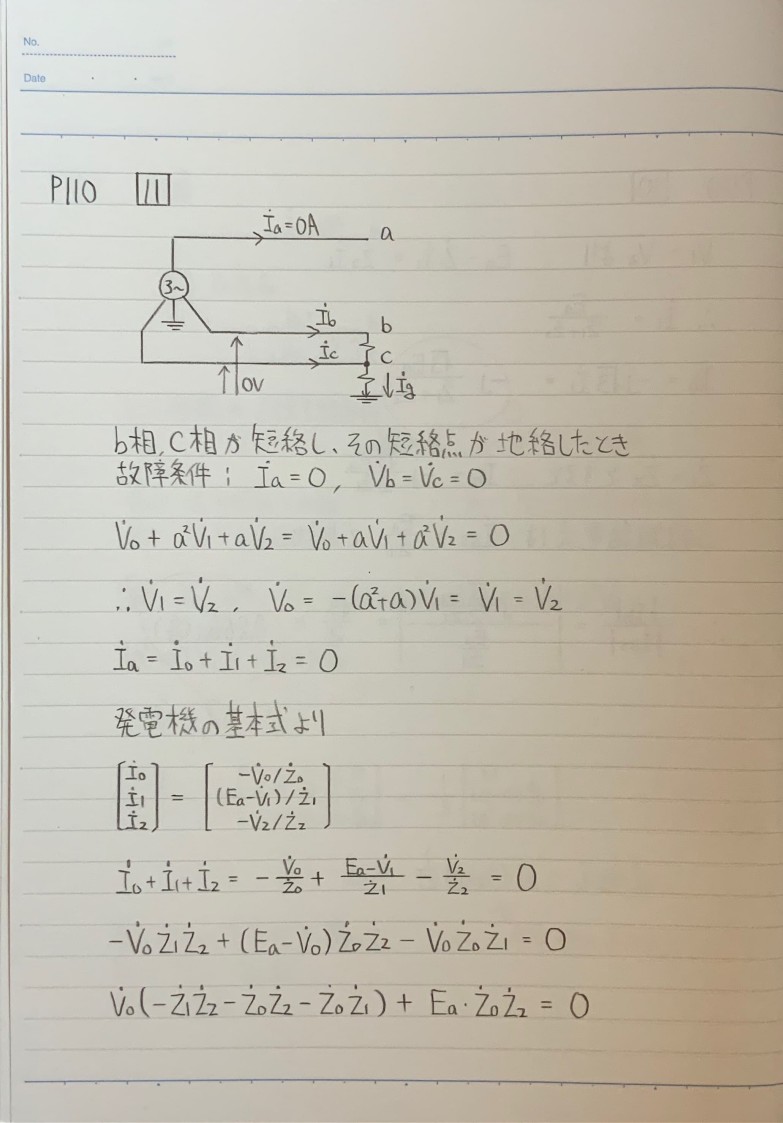 No.
Date ・ ・
P110 11
İa=0A a
3~
İb b
İc c
0V İg
b相,C相が短絡し、その短絡点が地絡したとき
故障条件; İa=0, V̇b=V̇c=0
V̇0+a²V̇1+aV̇2=V̇0+aV̇1+a²V̇2=0
∴V̇1=V̇2, V̇0=-(a²+a)V̇1=V̇1=V̇2
İa=İ0+İ1+İ2=0
発電機の基本式より
[İ0] [-V̇0/Ż0]
[İ1] = [(Ea-V̇1)/Ż1]
[İ2] [-V̇2/Ż2]
İ0+İ1+İ2=-V̇0/Ż0+(Ea-V̇1)/Ż1-V̇2/Ż2=0
-V̇0Ż1Ż2+(Ea-V̇0)Ż0Ż2-V̇0Ż0Ż1=0
V̇0(-Ż1Ż2-Ż0Ż2-Ż0Ż1)+Ea·Ż0Ż2=0